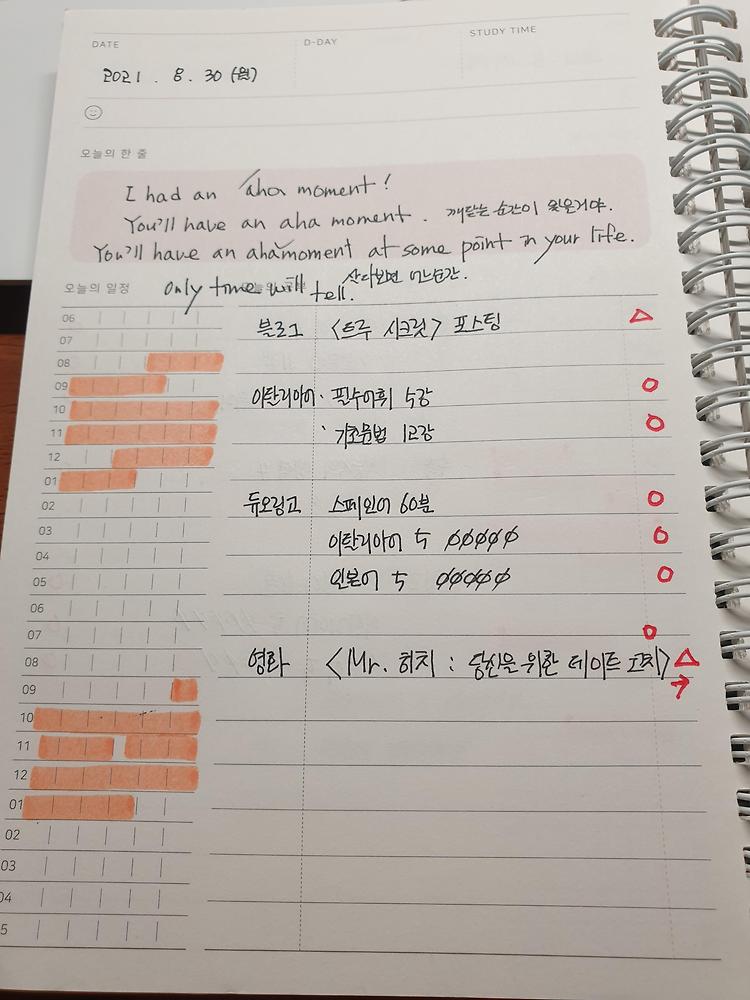 DATE
D-DAY
STUDY TIME
2021 . 8 . 30 (월)
오늘의 한 줄
I had an aha moment!
You'll have an aha moment. 깨닫는 순간이 있을거야.
You'll have an aha moment at some point in your life.
오늘의 일정
only time will tell. 살다보면 어느순간.
06
07
08
09
10
11
12
01
02
03
04
05
06
07
08
09
10
11
12
01
02
03
04
5
블로그 <트루 시크릿> 포스팅 △
이탈리아어 · 필수어휘 5강 O
· 기초문법 12강 O
듀오링고 스페인어 60분 O
이탈리아어 5 ØØØØØ O
일본어 5 ØØØØØ O
O
영화 <Mr. 히치 : 당신을 위한 데이트 코치> △
→